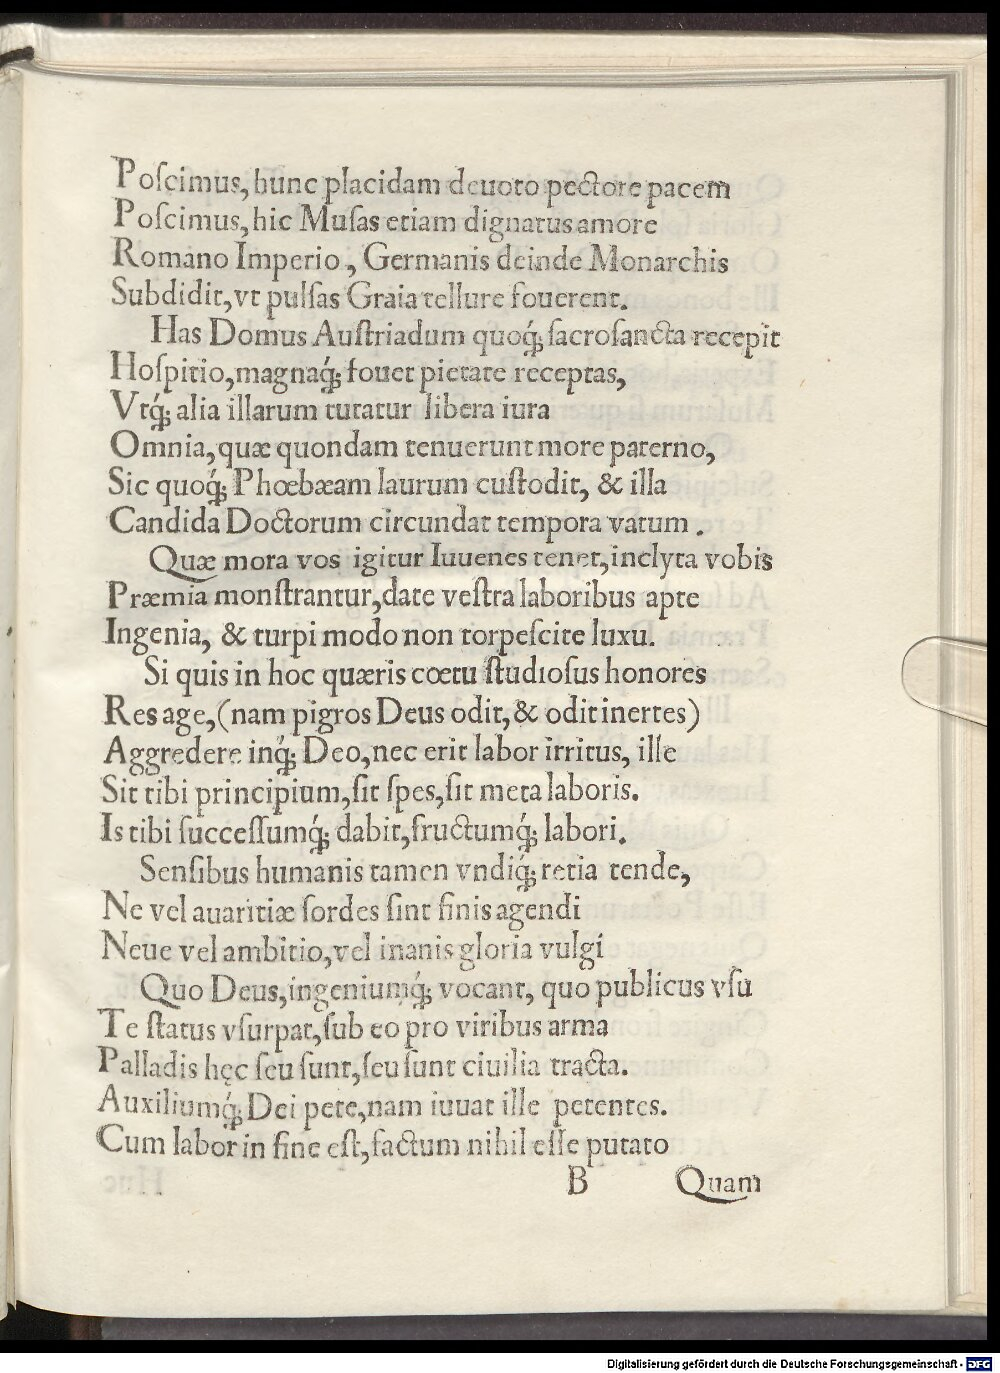 Poſcimus, hunc placidam deuoto pectore pacem
Poſcimus, hic Muſas etiam dignatus amore
Romano Imperio, Germanis deinde Monarchis
Subdidit, vt pulſas Graia tellure fouerent.
Has Domus Auſtriadum quoq́; ſacroſancta recepit
Hoſpitio, magnaq́; fouet pietate receptas,
Vtq́; alia illarum tutatur libera iura
Omnia, quæ quondam tenuerunt more paterno,
Sic quoq́; Phœbæam laurum cuſtodit, & illa
Candida Doctorum circundat tempora vatum.
Quæ mora vos igitur Iuuenes tenet, inclyta vobis
Præmia monſtrantur, date veſtra laboribus apte
Ingenia, & turpi modo non torpeſcite luxu.
Si quis in hoc quæris cœtu ſtudioſus honores
Res age, (nam pigros Deus odit, & odit inertes)
Aggredere inq́; Deo, nec erit labor irritus, ille
Sit tibi principium, ſit ſpes, ſit meta laboris.
Is tibi ſucceſſumq́; dabit, fructumq́; labori.
Senſibus humanis tamen vndiq́; retia tende,
Ne vel auaritiæ ſordes ſint finis agendi
Neue vel ambitio, vel inanis gloria vulgi
Quo Deus, ingeniumq́; vocant, quo publicus vſu
Te ſtatus vſurpat, ſub eo pro viribus arma
Palladis hęc ſeu ſunt, ſeu ſunt ciuilia tracta.
Auxiliumq́; Dei pete, nam iuuat ille petentes.
Cum labor in fine eſt, factum nihil eſſe putato
B Quam
Digitalisierung gefördert durch die Deutsche Forschungsgemeinschaft - DFG